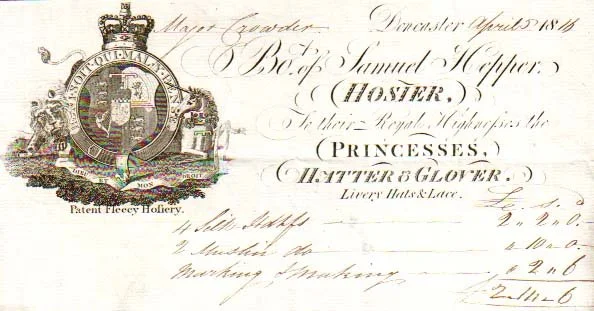 Major Crowder Doncaster April 5 1816
SOIT·QUI·MAL·Y·PEN
Bo.t of Samuel Hepper.
(HOSIER,)
To their Royal Highnesses the
(PRINCESSES,)
HATTER & GLOVER.
Livery Hats & Lace.
DIEU MON DROIT
Patent Fleecy Hosiery.
£ s. d
4 Silk Hdkfs — 2 „ 2 „ 0.
2 Muslin do — „ 10 „ 0.
Marking & Making — „ 2 „ 6
2 „ 14 „ 6